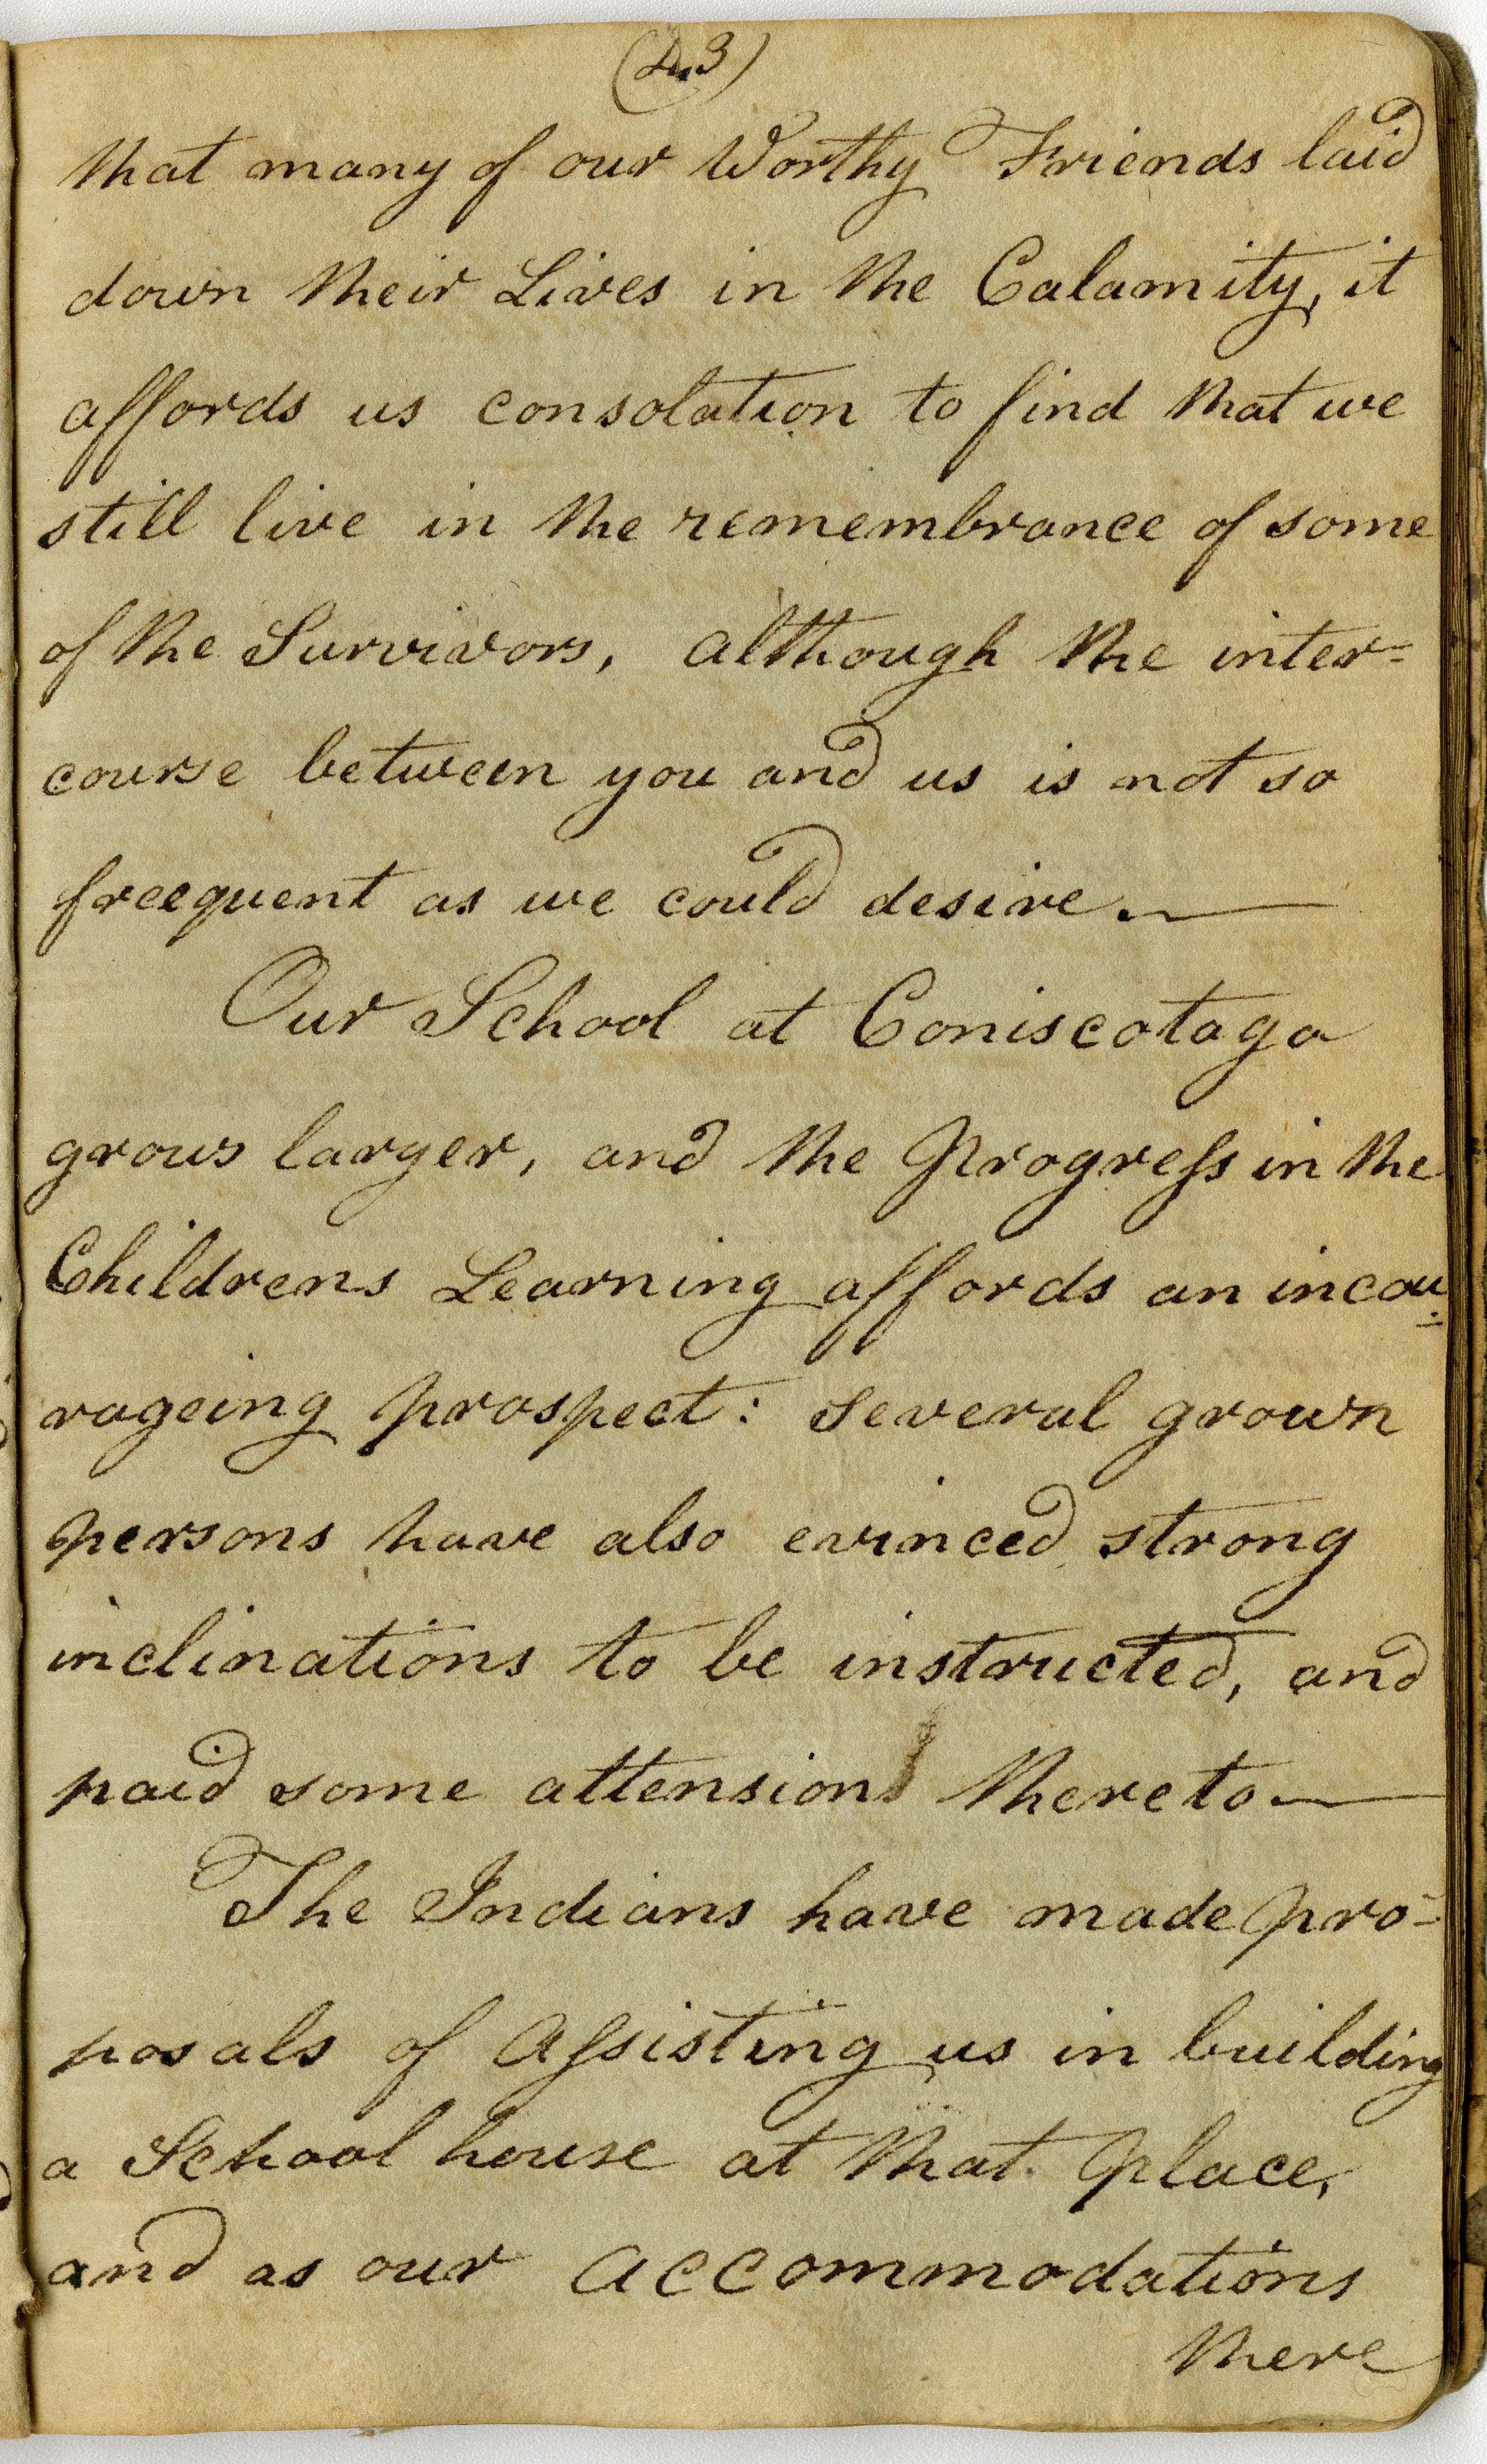 (43)
that many of our Worthy Friends laid
down their Lives in the Calamity, it
affords us consolation to find that we
still live in the remembrance of some
of the Survivors, although the inter=
course between you and us is not so
freequent as we could desire.—
Our School at Coniscotago
grows larger, and the Progress in the
Childrens Learning affords an incou=
rageing prospect: several grown
persons have also evinced strong
inclinations to be instructed, and
paid some attension thereto—
The Indians have made pro=
posals of Assisting us in building
a School house at that place,
and as our accommodations
there